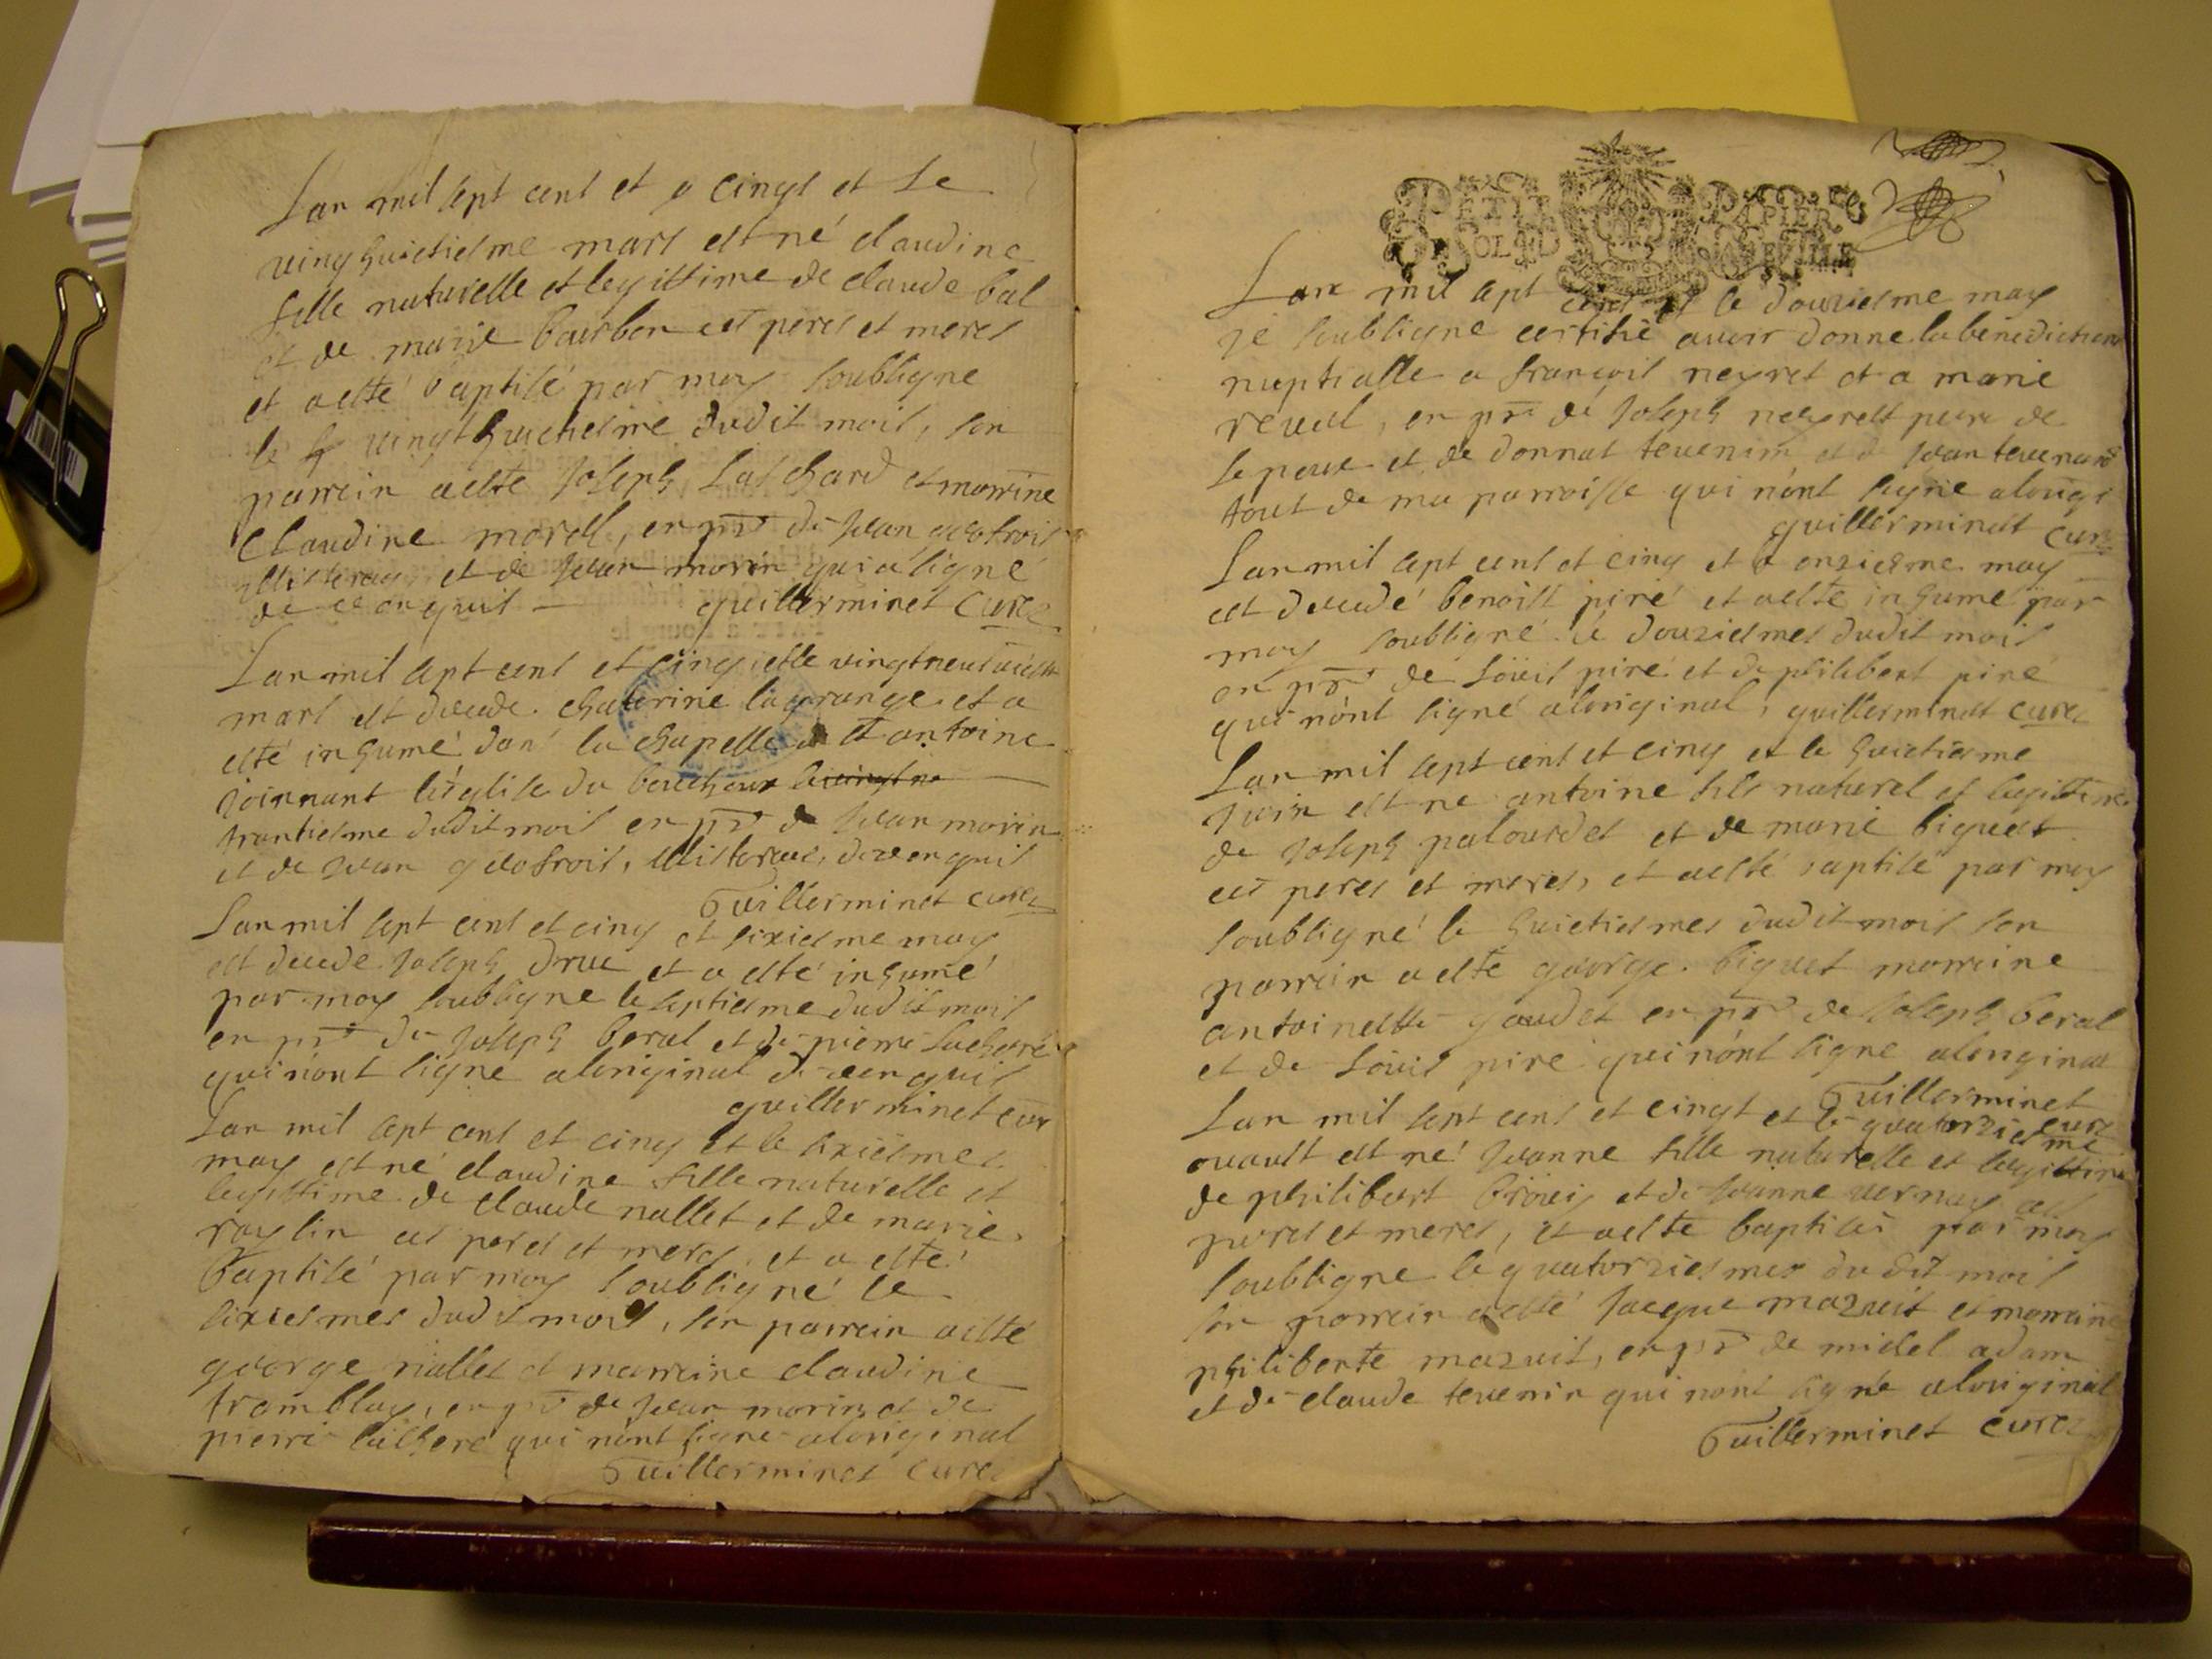 Lan mil sept cens et cinqt et le
vingt huictiesme mars est né claudine
fille naturelle et legittime de claude bal
et de marie bourbon ces peres et meres
et aesté baptisé par moy soubsigne
le vingt huictiesme dudit mois, son
parrein aesté Joseph Laschard et marrine
Claudine morell, en pnce de Jean geofrois
et de Jean morin qui a signé
de ce enquis guillerminet Curé
Lan mil sept cens et cinq et le vingt neufviesme
mars est decede chaterine lagrange et a
esté inhumé dans la chapelle de st antoine
Joinnant léglise du bouchoux le vingt ne
trantiesme dudit mois en pnce de Jean morin
et de Jean geofrois, de ce enquis
Guillerminet curé
Lan mil sept cens et cinq et sixiesme may
est decede Joseph druc et a esté inhumé
par moy soubsigne le septiesme dudit mois
en pnce de Joseph beral et de pierre Lacheré
qui nont signe aloriginal de ce enquis
guillerminet cur
Lan mil sept cens et cinq et le sixiesmes
may est né claudine fille naturelle et
legittime de claude nallet et de marie
roylin ces peres et meres, et a esté
baptisé par moy soubsigné le
sixiesmes dudit mois, son parrein aesté
george nallet et marreine claudine
tramblay, en pnce de Jean morin et de
pierre lachere qui nont signe aloriginal
Guillerminet Curé
PETIT PAPIER
SOL
Lan mil sept cens et le douziesme may
je soubsigne certifié avoir donne la benediction
nuptialle a françois neyret et a marie
revel, en pnce de Joseph neyrett pere de
lepoux et de donnat tevenin et de Jean tevenard
tout de ma parroisse qui nont signe alorigi
guillerminet cure
Lan mil sept cens et cinq et le onziesme may
est decedé benoist piré et aesté inhumé par
moy soubsigné le douziesmes dudit mois
en pnce de Loüis piré et de philibert piré
qui nont signé aloriginal, guillerminet curé
Lan mil sept cens et cinq et le huictiesme
juin est ne antoine fils naturel et legittime
de Joseph palourdet et de marie biguet
ces peres et meres, et aesté baptisé par moy
soubsigné le huictiesmes dudit mois son
parrein aesté george biguet marreine
antoinette gaudet en pnce de Joseph beral
et de Loüis piré qui nont signe aloriginal
Guillerminet curé
Lan mil sept cens et cinqt et le quatorziesme
ouaust est né Jeanne fille naturelle et legittime
de philibert et de Jeanne vernay ces
peres et meres, et aesté baptisés par moy
soubsigne le quatorziesmes dudit mois
son parrein aesté Jacque mazuit et marraine
philiberte mazuit, en pnce de michel adam
et de claude tevenin qui nont signé aloriginal
Guillerminet Curé